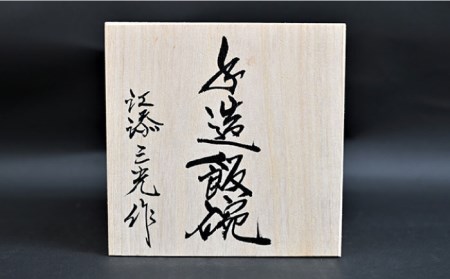 手造飯碗
江添三光作